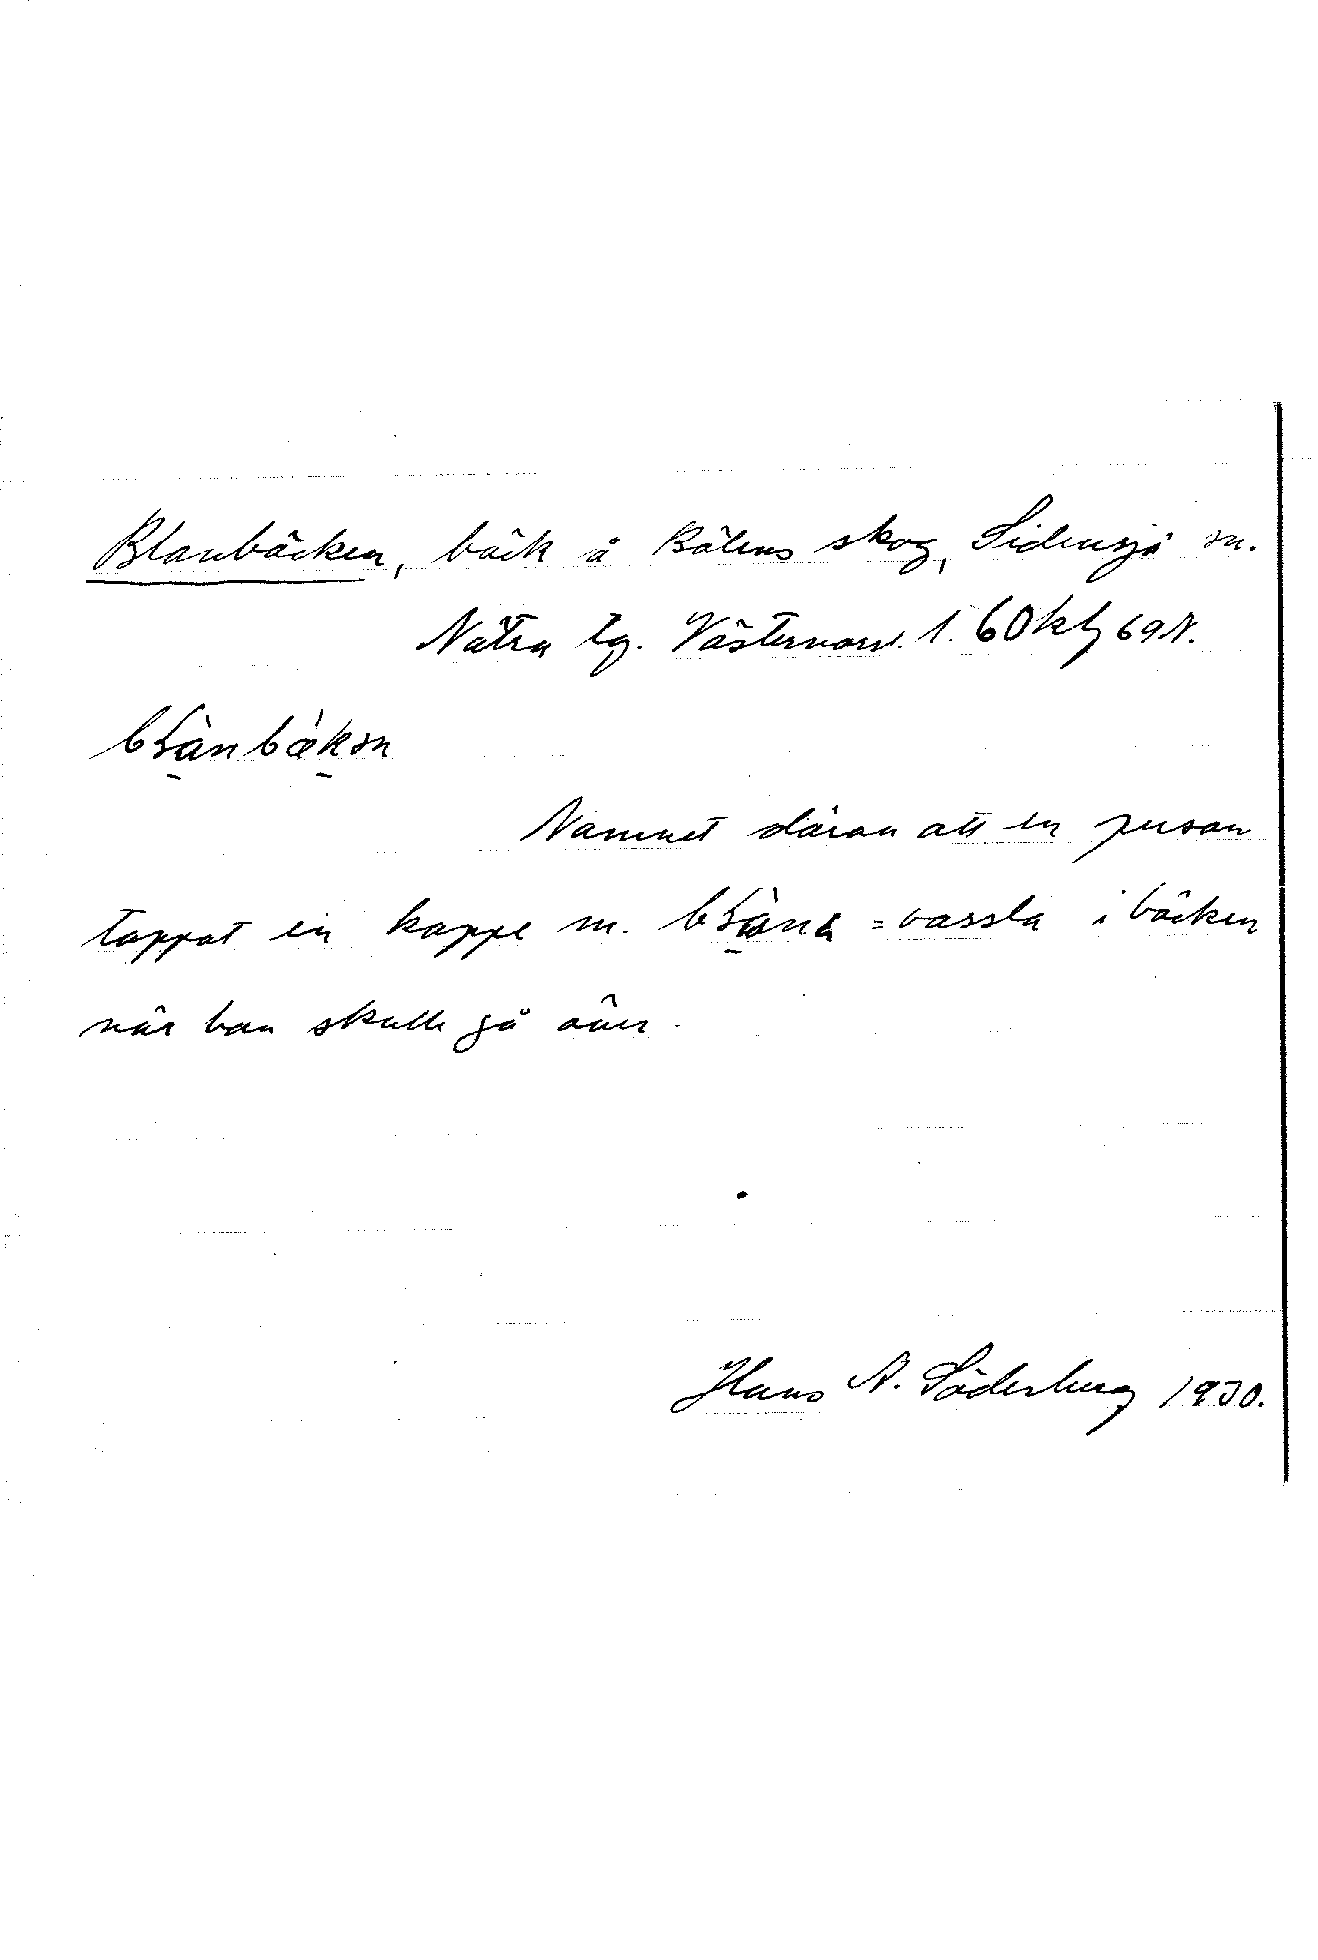 Blanbäcken, bäck å Bölens skog, Sidensjö sn.
Nätra tg. Västernorrl. l. 60 69N.
Namnet därav att en person
tappat en kappe m. = vassla i bäcken
när han skulle gå över.
Hans A. Söderberg 1930.